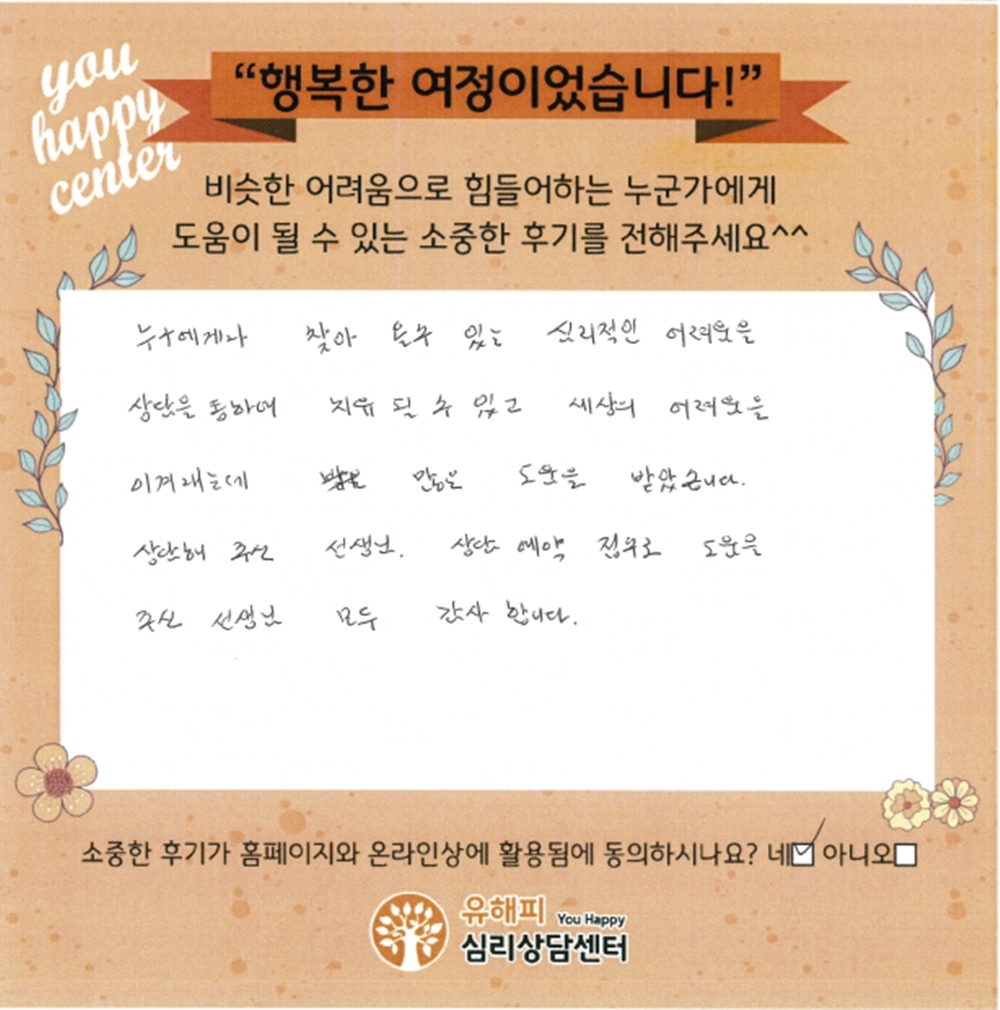 you
happy
center
“행복한 여정이었습니다!”
비슷한 어려움으로 힘들어하는 누군가에게
도움이 될 수 있는 소중한 후기를 전해주세요^^
누구에게나 찾아 올수 있는 심리적인 어려움을
상담을 통하여 치유 될 수 있고 세상의 어려움을
이겨내는데 많은 도움을 받았습니다.
상담해 주신 선생님. 상담 예약 접수로 도움을
주신 선생님 모두 감사 합니다.
소중한 후기가 홈페이지와 온라인상에 활용됨에 동의하시나요? 네☑ 아니오☐
유해피 You Happy
심리상담센터